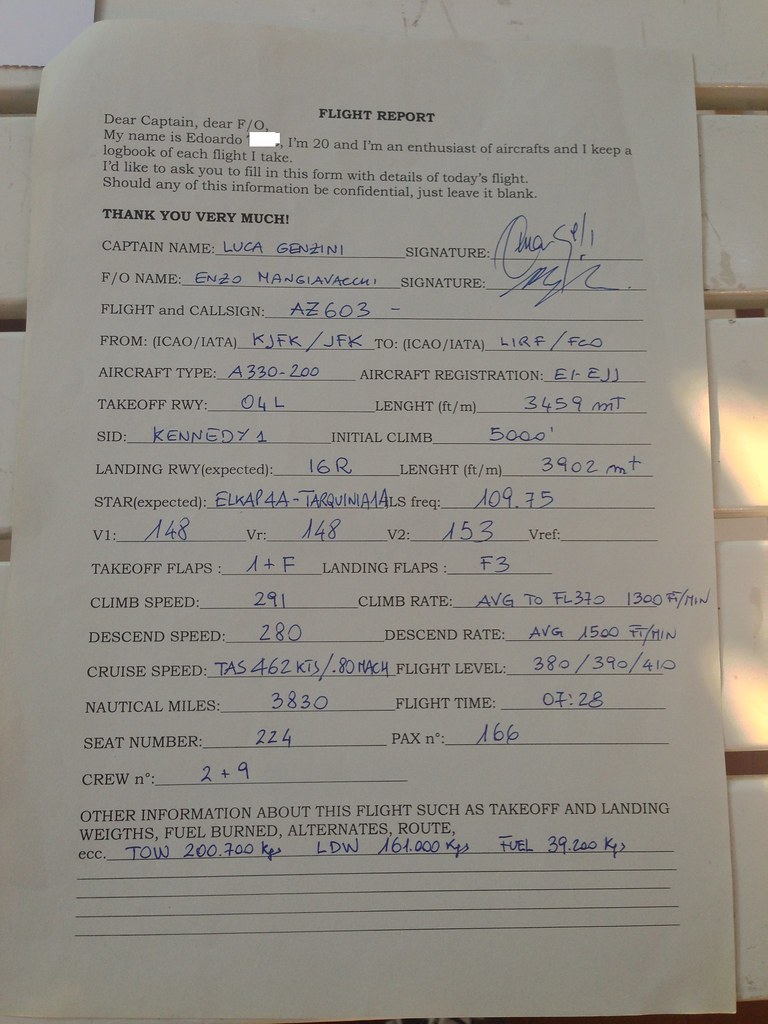 FLIGHT REPORT
Dear Captain, dear F/O,
My name is Edoardo , I'm 20 and I'm an enthusiast of aircrafts and I keep a
logbook of each flight I take.
I'd like to ask you to fill in this form with details of today's flight.
Should any of this information be confidential, just leave it blank.
THANK YOU VERY MUCH!
CAPTAIN NAME: LUCA GENZINI SIGNATURE:
F/O NAME: ENZO MANGIAVACCHI SIGNATURE:
FLIGHT and CALLSIGN: AZ603 -
FROM: (ICAO/IATA) KJFK / JFK TO: (ICAO/IATA) LIRF / FCO
AIRCRAFT TYPE: A330-200 AIRCRAFT REGISTRATION: EI-EJJ
TAKEOFF RWY: 04L LENGHT (ft/m) 3459 mT
SID: KENNEDY 1 INITIAL CLIMB 5000'
LANDING RWY(expected): 16R LENGHT (ft/m) 3902 mt
STAR(expected): ELKAP4A-TARQUINIA1A LS freq: 109.75
V1: 148 Vr: 148 V2: 153 Vref:
TAKEOFF FLAPS : 1+F LANDING FLAPS : F3
CLIMB SPEED: 291 CLIMB RATE: AVG TO FL370 1300 FT/MIN
DESCEND SPEED: 280 DESCEND RATE: AVG 1500 FT/MIN
CRUISE SPEED: TAS 462 KTS/.80 MACH FLIGHT LEVEL: 380/390/410
NAUTICAL MILES: 3830 FLIGHT TIME: 07:28
SEAT NUMBER: 224 PAX n°: 166
CREW n°: 2+9
OTHER INFORMATION ABOUT THIS FLIGHT SUCH AS TAKEOFF AND LANDING
WEIGTHS, FUEL BURNED, ALTERNATES, ROUTE,
ecc. TOW 200.700 Kgs LDW 161.000 Kgs FUEL 39.200 Kgs